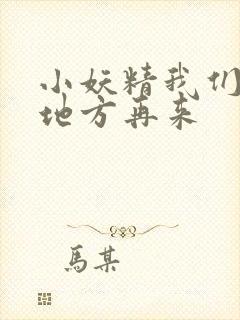 小妖精我们
地方再来
馬某